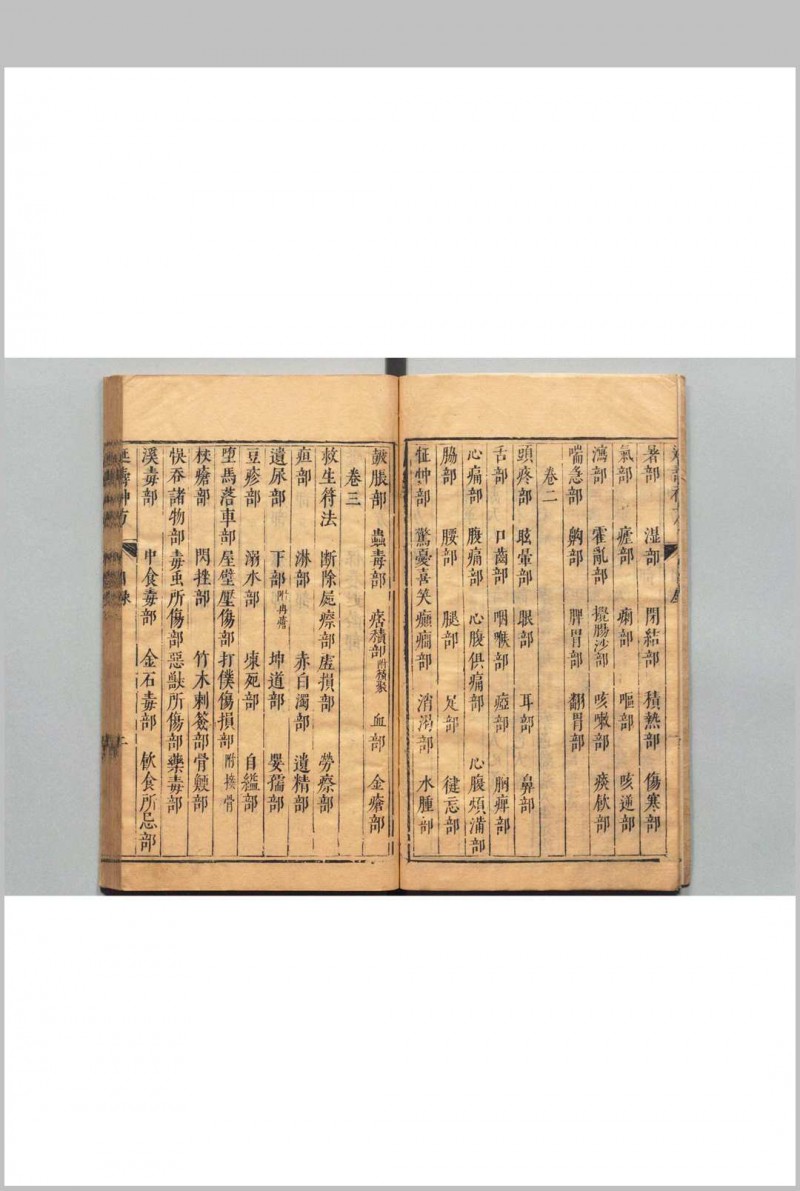 暑部 湿部 閉結部 積熱部 傷寒部
氣部 瘧部 痢部 嘔部 咳逆部
瀉部 霍亂部 攪腸沙部 咳嗽部 痰飲部
喘急部 齁部 脾胃部 翻胃部
卷二
頭疼部 眩暈部 眼部 耳部 鼻部
舌部 口齒部 咽喉部 瘂部 胸痺部
心痛部 腹痛部 心腹俱痛部 心腹煩滿部
腸部 腰部 腿部 足部 健忘部
怔忡部 驚憂喜笑 癲癇部 消渴部 水腫部
皷脹部 蟲毒部 痞積部附積聚 血部 金瘡部
卷三
救生符法 断除屍瘵部 虛損部 勞瘵部
疸部 淋部 赤白濁部 遺精部
遺尿部 下部 坤道部 嬰孺部
豆疹部 溺水部 凍死部 自縊部
墮馬落車部 屋壁壓傷部 打僕傷損部 附接骨
杖瘡部 閃挫部 竹木刺簽部 骨鯁部
悞吞諸物部 毒䖝所傷部 惡獸所傷部 藥毒部
溪毒部 中食毒部 金石毒部 飲食所忌部
延壽神方 目錄 二